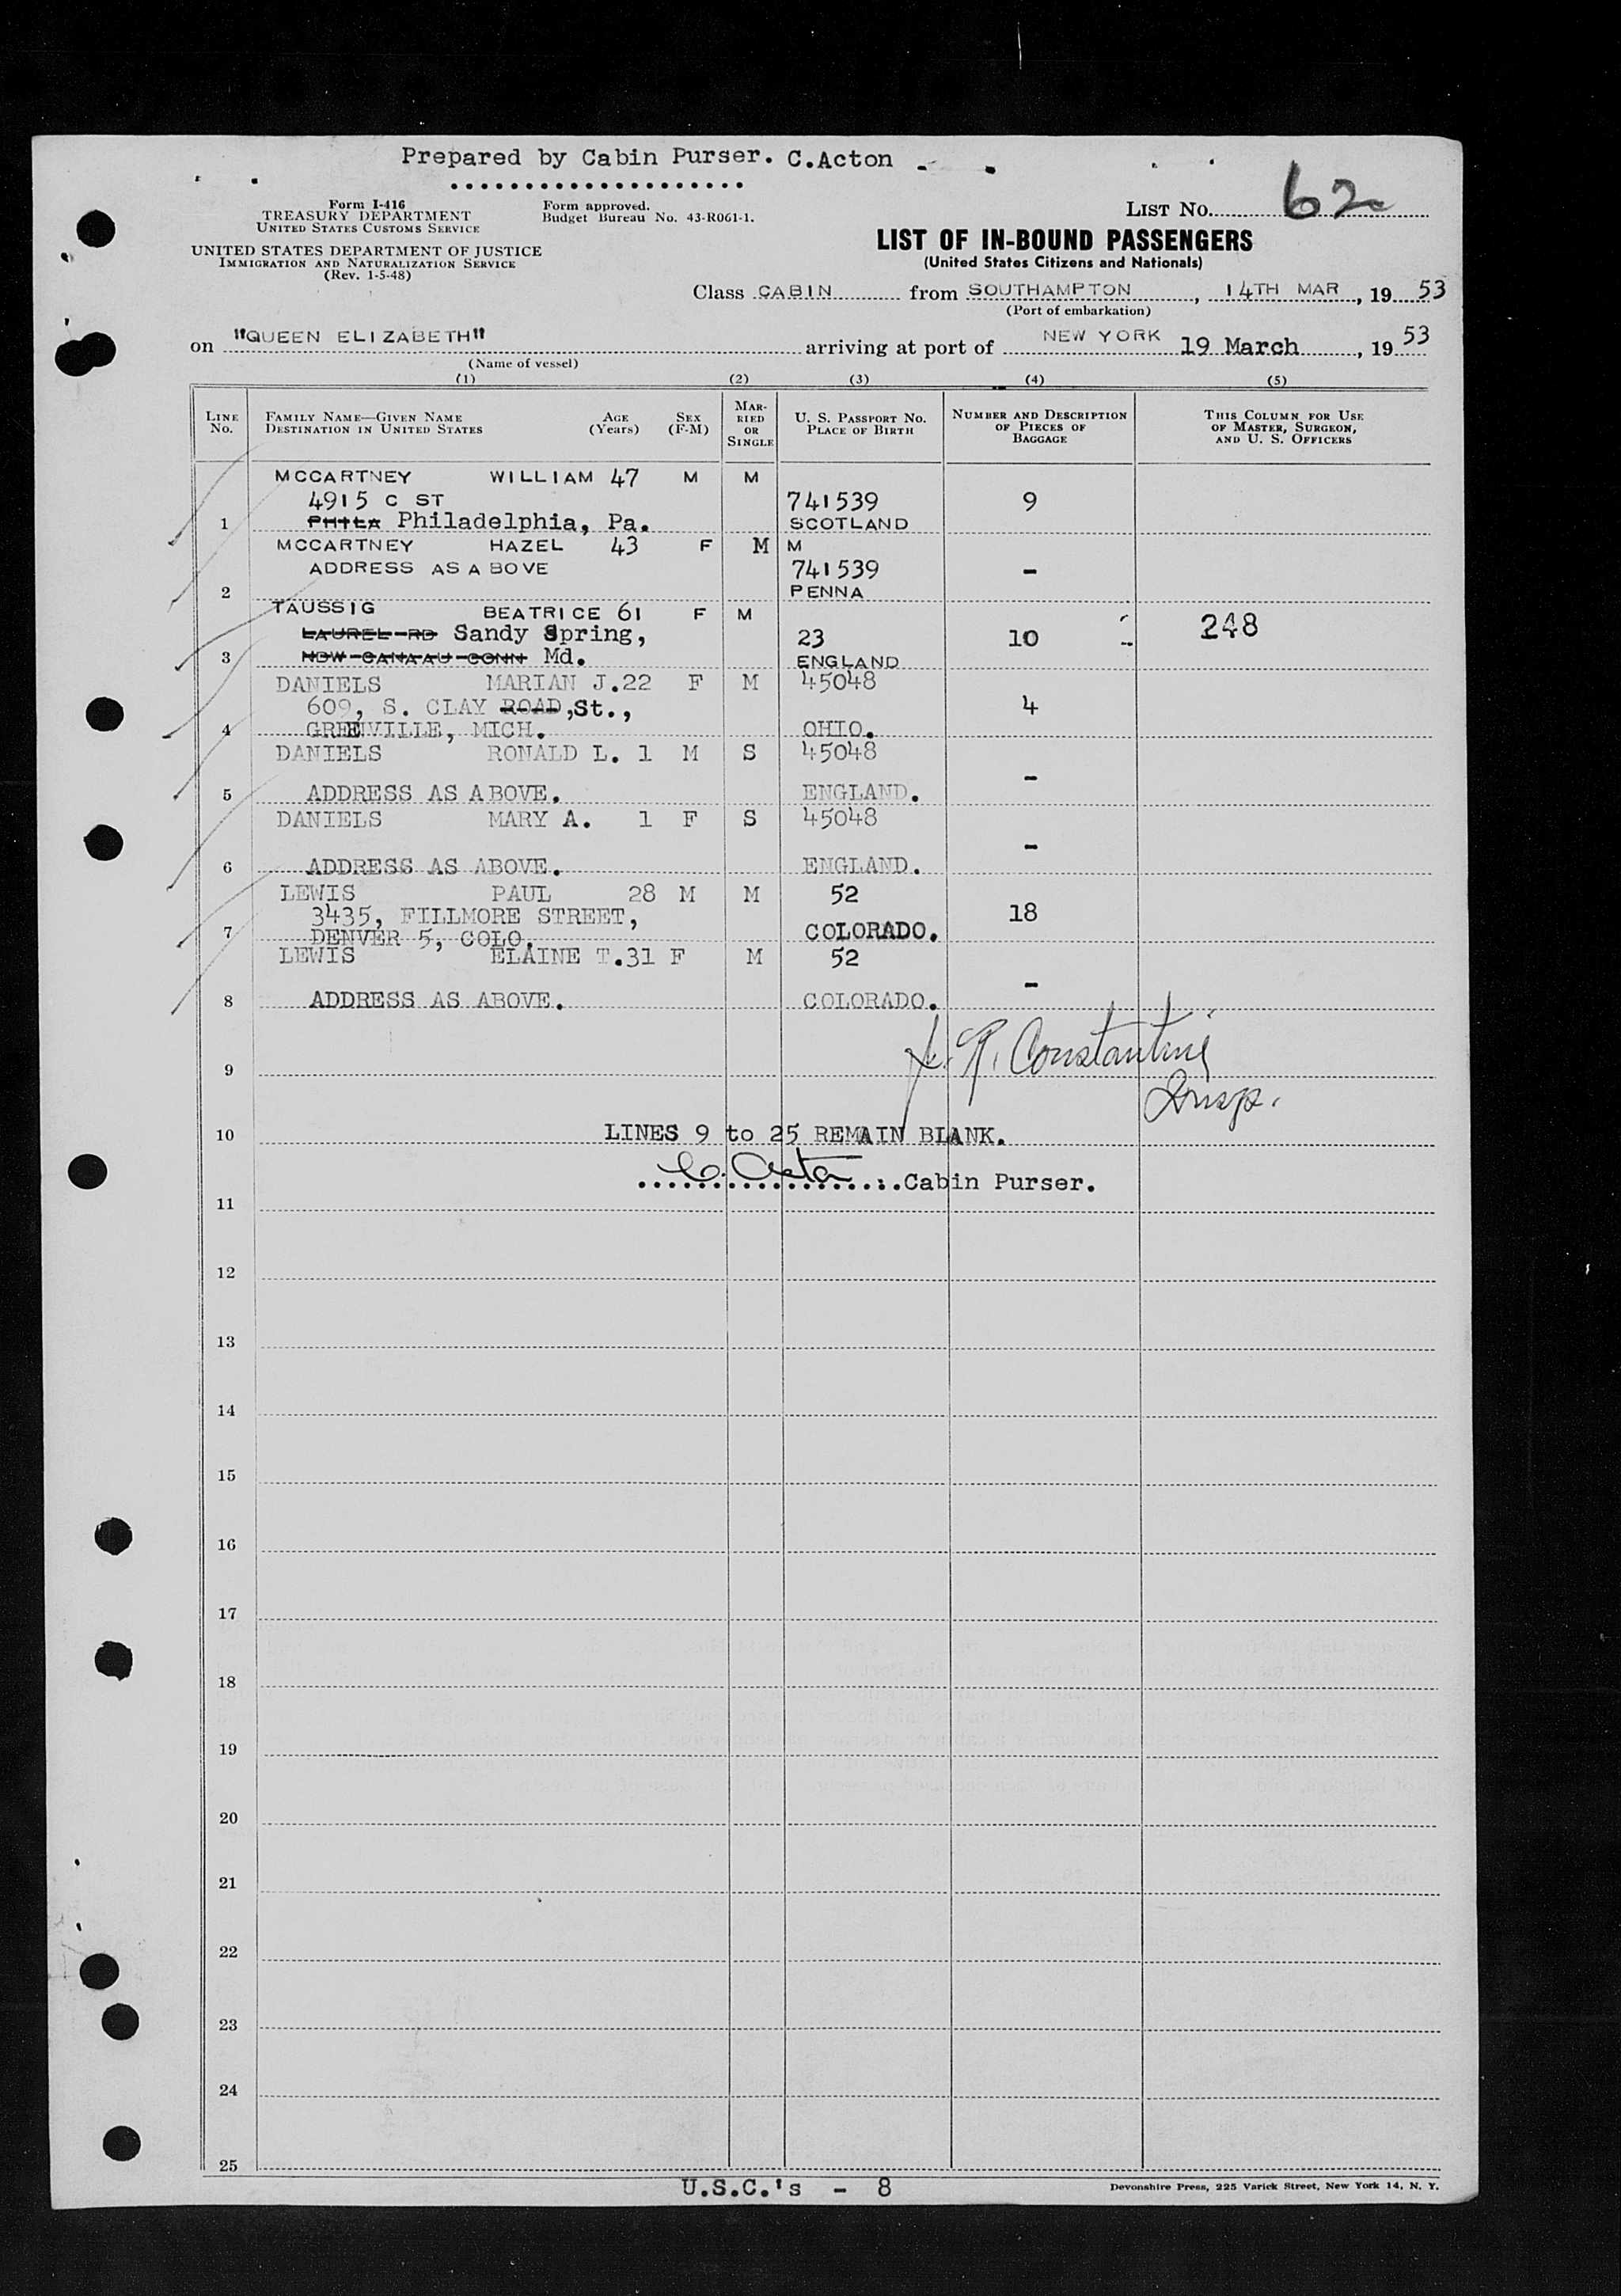 Prepared by Cabin Purser. C.Acton
Form I-416
TREASURY DEPARTMENT
UNITED STATES CUSTOMS SERVICE
UNITED STATES DEPARTMENT OF JUSTICE
IMMIGRATION AND NATURALIZATION SERVICE
(Rev. 1-5-48)
Form approved.
Budget Bureau No. 43-R061-1.
LIST No. 62
LIST OF IN-BOUND PASSENGERS
(United States Citizens and Nationals)
Class CABIN from SOUTHAMPTON, 14TH MAR, 19 53
(Port of embarkation)
on "QUEEN ELIZABETH" arriving at port of NEW YORK 19 March, 19 53
(Name of vessel)
(1) (2) (3) (4) (5)
LINE No. FAMILY NAME—GIVEN NAME DESTINATION IN UNITED STATES AGE (Years) SEX (F-M) MARRIED OR SINGLE U. S. PASSPORT No. PLACE OF BIRTH NUMBER AND DESCRIPTION OF PIECES OF BAGGAGE THIS COLUMN FOR USE OF MASTER, SURGEON, AND U. S. OFFICERS
MCCARTNEY WILLIAM 47 M M
4915 C ST 741539 9
1 PHILA Philadelphia, Pa. SCOTLAND
MCCARTNEY HAZEL 43 F M M
ADDRESS AS ABOVE 741539 -
2 PENNA
TAUSSIG BEATRICE 61 F M
LAUREL RD Sandy Spring, 23 10 248
3 NEW CANAAU CONN Md. ENGLAND
DANIELS MARIAN J.22 F M 45048
609, S. CLAY ROAD,St., 4
4 GREENVILLE, MICH. OHIO.
DANIELS RONALD L. 1 M S 45048
-
5 ADDRESS AS ABOVE. ENGLAND.
DANIELS MARY A. 1 F S 45048
-
6 ADDRESS AS ABOVE. ENGLAND.
LEWIS PAUL 28 M M 52
3435, FILLMORE STREET, 18
7 DENVER 5, COLO. COLORADO.
LEWIS ELAINE T.31 F M 52
-
8 ADDRESS AS ABOVE. COLORADO.
R. Constantine
9
Insp.
10 LINES 9 to 25 REMAIN BLANK.
C. Acton Cabin Purser.
11
12
13
14
15
16
17
18
19
20
21
22
23
24
25
U.S.C.'s - 8
Devonshire Press, 225 Varick Street, New York 14, N. Y.